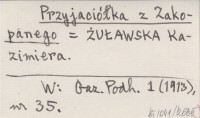 Przyjaciółka z Zako-
panego = ŻUŁAWSKA Ka-
zimiera.
W: Gaz. Podh. 1 (1913),
nr 35.